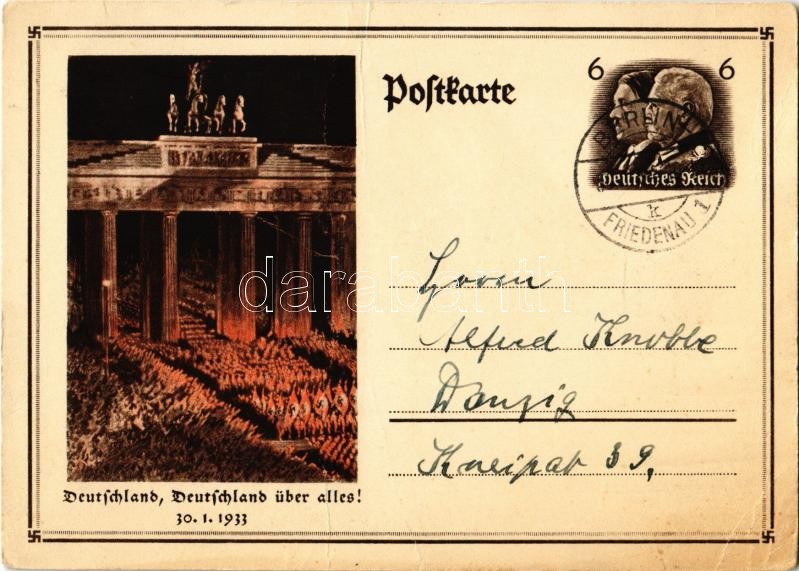 Postkarte
6 6
Deutsches Reich
BERLIN-
k
FRIEDENAU 1
darabanth
Herrn
Alfred Knobbe
Danzig
Kneipab 39,
Deutschland, Deutschland über alles!
30. 1. 1933